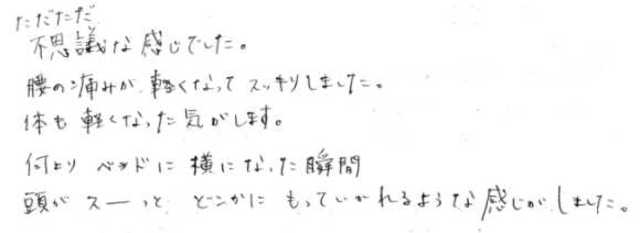 ただただ
不思議な感じでした。
腰の痛みが軽くなってスッキリしました。
体も軽くなった気がします。
何より ベッドに横になった瞬間
頭がスーっと どこかに もっていかれるような感じがしました。